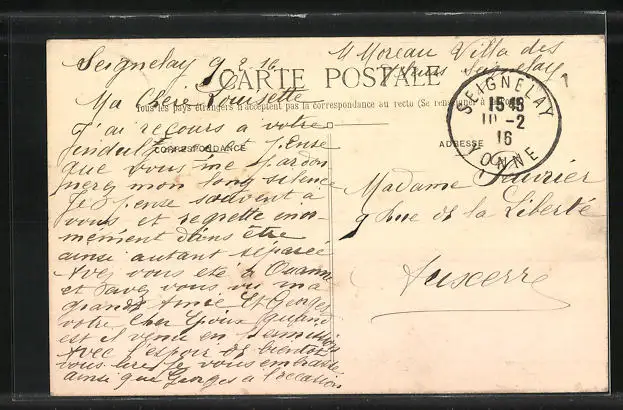 Seignelay 9 2 16
M Moreau Villa des
Tilleuls Seignelay
CARTE POSTALE
Tous les pays étrangers n'acceptent pas la correspondance au recto (Se renseigner à
CORRESPONDANCE
ADRESSE
SEIGNELAY
15 45
10 -2
16
YONNE
Ma Chère Louisette
J'ai recours à votre
indulgence et pense
que vous me pardon
nerez mon long silence
Je pense souvent à
vous et regrette enor-
mément d'être
ainsi autant séparée
Avez vous été à Ouanne
et avez vous vu ma
grande Amie Et Georges
votre cher époux quand
est il venu en permission
Avec l'espoir de bientôt
vous lire je vous embrasse
ainsi que Georges à l'occasion
Madame
9 Rue de la Liberté
Auxerre